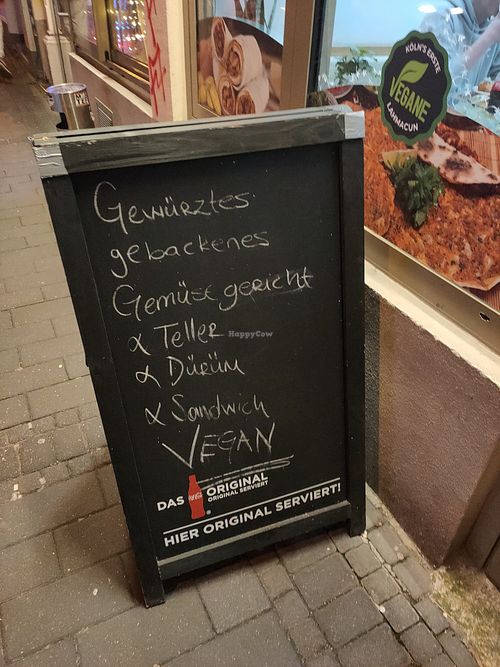 KÖLN'S ERSTE
VEGANE
LAHMACUN
Gewürztes
gebackenes
Gemüse gericht
α Teller
α Dürüm
α Sandwich
VEGAN
HappyCow
DAS ORIGINAL
ORIGINAL SERVIERT
HIER ORIGINAL SERVIERT!